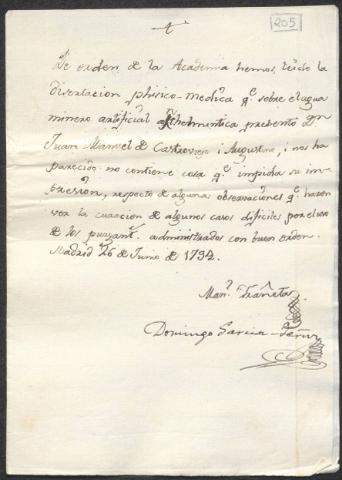 205
De orden de la Academia hemos leido la
disertacion phisico-medica qe sobre el agua
minero artificial anthelmintica presento Dn
Juan Manuel de Castroviejo i Augustina, i nos ha
parecido no contiene cosa qe impida su im-
presion, respecto de algunas observaciones qe hacen
ver la curacion de algunos casos dificiles por el uso
de los purgantes administrados con buen orden.
Madrid 26 de Junio de 1794.
Manl
Domingo Garcia